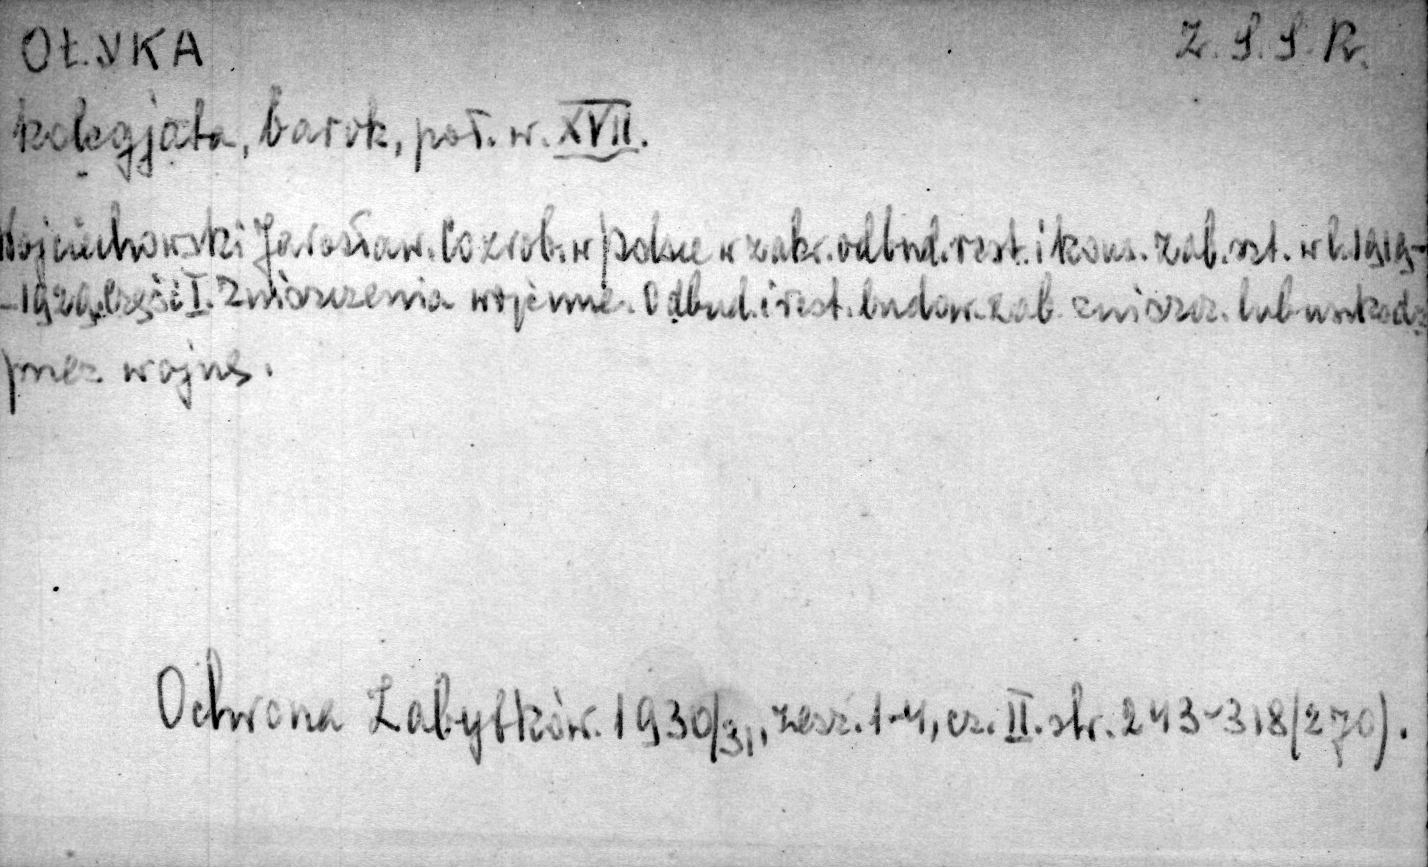 OŁYKA Z.S.S.R.
kolegjata, barok, poł. w. XVII.
Wojciechowski Jarosław. Co zrob. w Polsce w zakr. odbud. rest. i kons. zab. szt. w l. 1919-
-1929. Część I. Zniszczenia wojenne. Odbud. i rest. budow. zab. zniszcz. lub uszkodz.
przez wojnę.
Ochrona Zabytków. 1930/31, zesz. 1-4, cz. II. str. 243-318 (270).